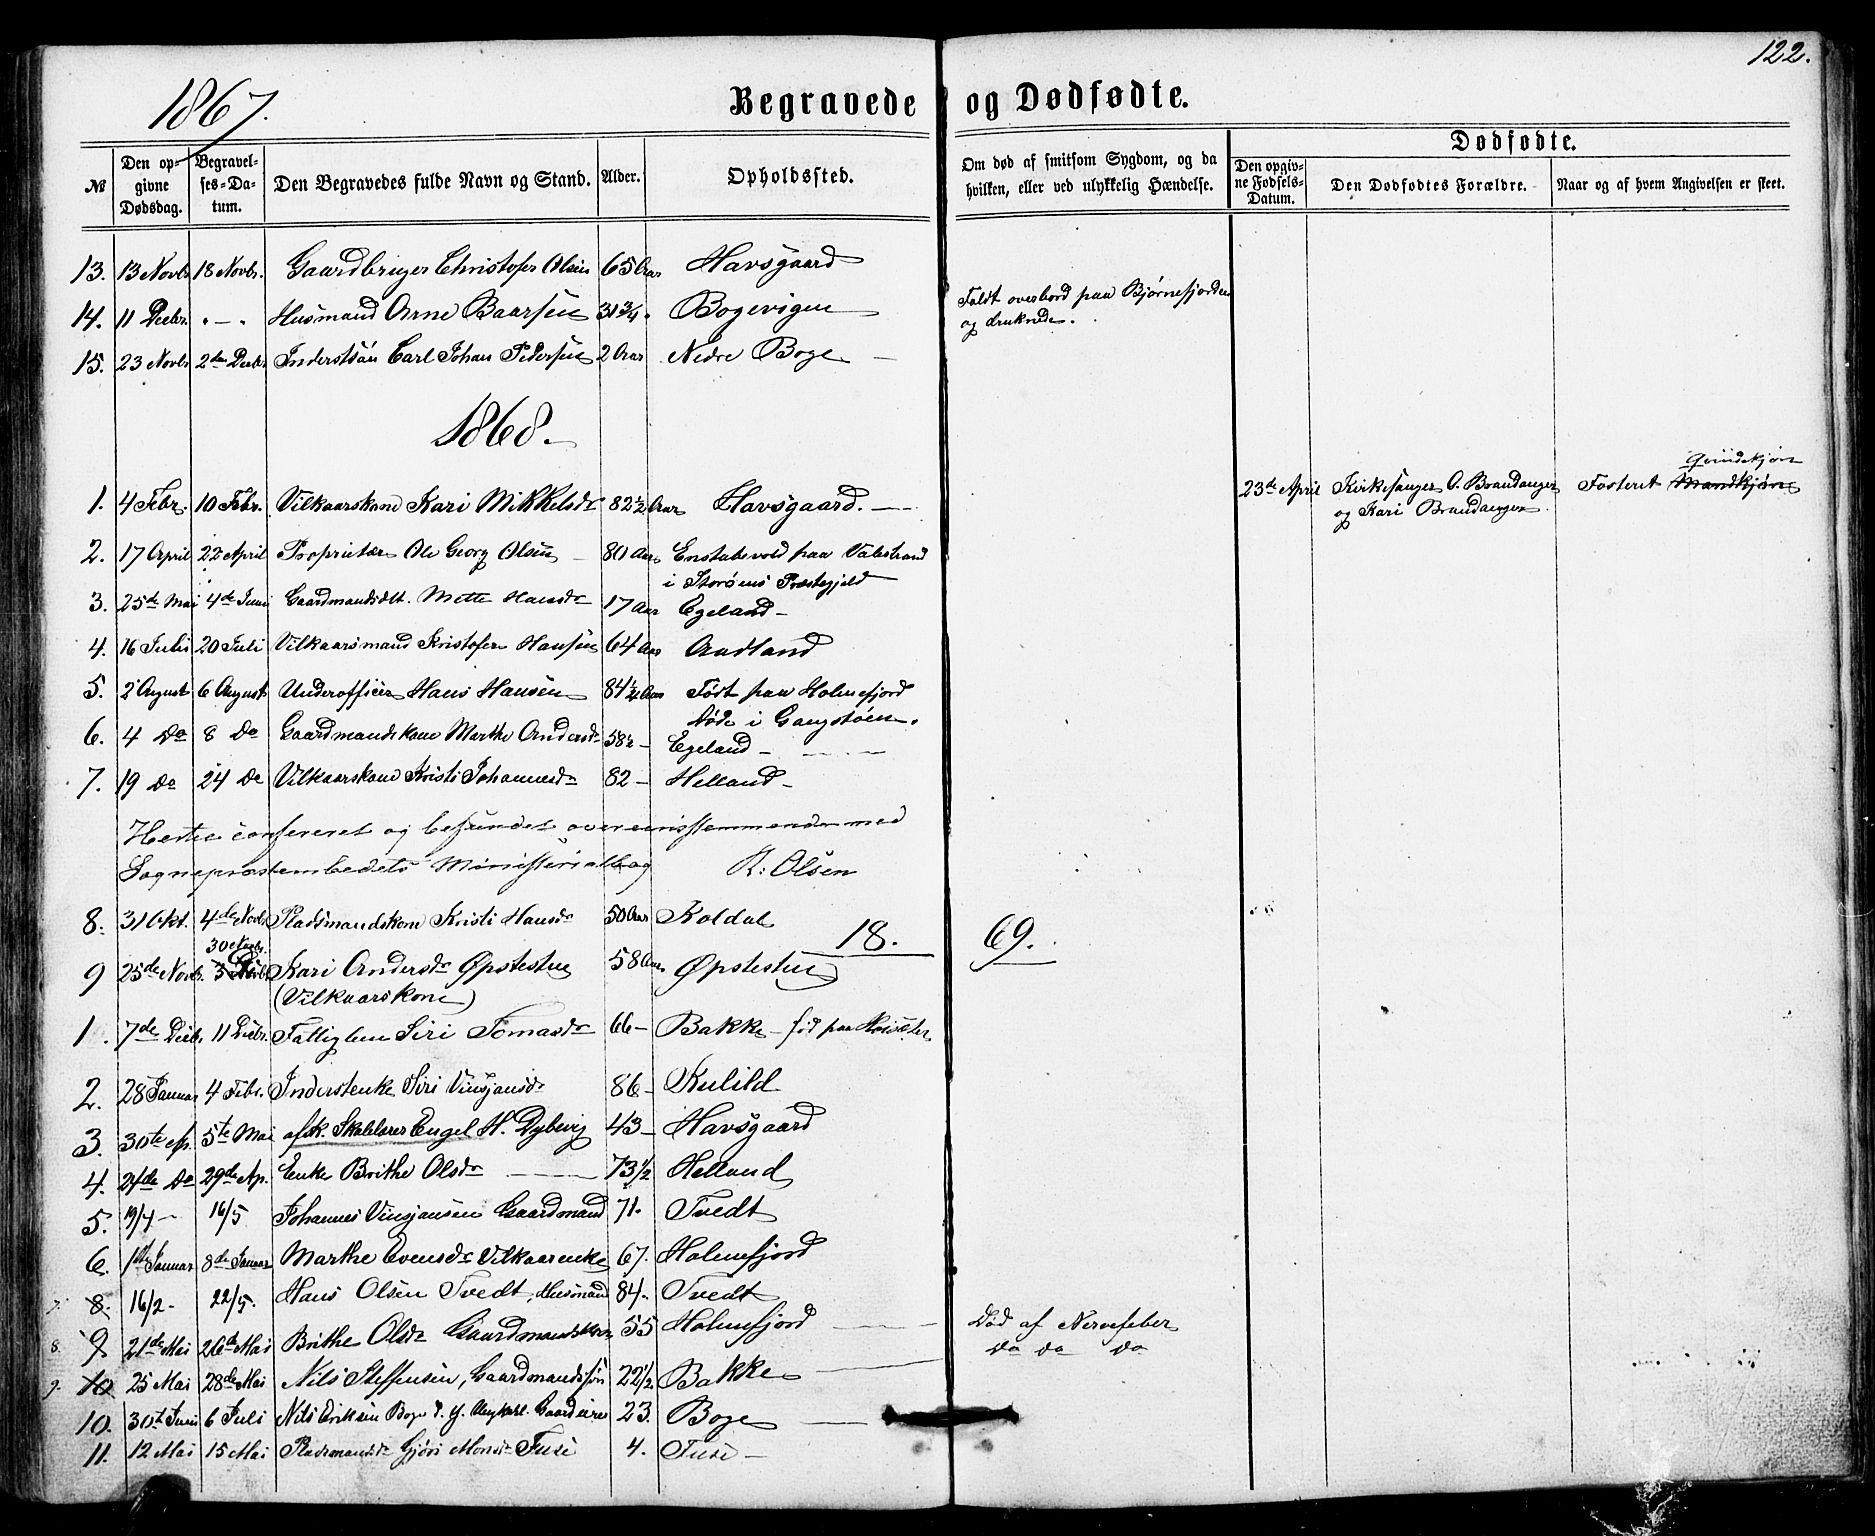 122.
1867.
Begravede og Dødfødte.
№ Den opgivne Dødsdag. Begravelses-Datum. Den Begravedes fulde Navn og Stand. Alder. Opholdssted. Om død af smitsom Sygdom, og da hvilken, eller ved ulykkelig Hændelse. Dødfødte. Den opgivne Fødsels-Datum. Den Dødfødtes Forældre. Naar og af hvem Angivelsen er skeet.
13. 13 Novbr 18 Novbr. Gaardbruger Christofer Olsen 65 Aar Havsgaard
14. 11 Decbr. " — " Husmand Arne Baarsen 31 3/4 " Bogevigen Faldt overbord paa Bjørnefjorden
og druknede.
15. 23 Novbr 2den Decbr Inderstsøn Carl Johan Pedersen 2 Aar Nedre Boge —
1868.
Qvindekjøn
1. 4 Febr. 10 Febr. Vilkaarskone Kari Mikkelsdr 82 1/2 Aar Havsgaard. — 23de April Kirkesanger O. Brandanger Fosteret Mandkjøn
og Kari Brandanger
2. 17 April 22 April Proprietær Ole Georg Olsen 80 Aar paa Valestrand
i Storøens Præstegjeld
3. 25de Mai 4de Juni Gaardmandsdt. Mette Hansdr 17 Aar Egeland —
4. 16 Juli 20 Juli Vilkaarsmand Kristofer Hansen 64 Aar Aadland
5. 2 August 6 August Underofficer Hans Hansen 84 1/2 Aar Født paa Holmefjord
døde i Gangstøen.
6. 4 Do 8 Do Gaardmandskone Marthe Andersdr 58 1/2 — Egeland —
7. 19 Do 24 Do Vilkaarskone Kristi Johannesdr 82 — Helland —
Hertil confereret og befundet overeensstemmende med
Sognepræstembedets Ministerialbog R: Olsen
8. 31 Okt. 4de Novbr Pladsmandskone Kristi Hansdr 50 Aar Koldal
30 Novbr. 18 69.
9 25de Novbr. 3 Decbr Kari Andersdr Øpstestue 58 Aar Øpstestue
(Vilkaarskone)
1. 7de Decbr. 11 Decbr. Fattiglem Siri Tomasdr 66 — Bakke — fød paa
2. 28 Januar 4 Febr. Inderstenke Siri Vinsjansdr 86 — Kulild
3. 30te Ap. 5te Mai afsk. Skolelærer Engel H. Dybvig 43 — Havsgaard
4. 24de Do 29de Ap. Enke Brithe Olsdr — 73 1/2 Helland
5. 19/4 — 16/5 Johannes Vinsjansen Gaardmand 71. Tvedt
6. 1ste Januar 8de Januar Marthe Evensdr Vilkaarenke 67. Holmefjord
7. 8. 16/2 — 22/5. Hans Olsen Tvedt, Husmand 84. Tvedt
8. 9. 21de Mai 26de Mai Brithe Olsdr Gaardmandskone 55 Holmefjord — Død af Nervefeber
9. 10 25 Mai 28de Mai Nils Steffensen, Gaardmandssøn 22 1/2 Bakke — Do Do Do
10. 30te Juni 6 Juli Nils Eriksen Boge Ungkarl. Gaardeier 23. Boge —
11. 12 Mai 15 Mai Pladsmandsdr Gjøri Monsdr Fuse 4. Fuse —